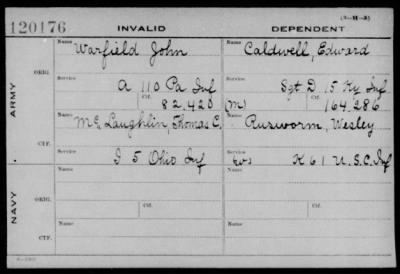 (3-H-3)
120176 INVALID DEPENDENT
Name Name
Warfield John Caldwell, Edward
ORIG.
Service Service
A 110 Pa Inf Sgt D. 15 Ky Inf
Ctf. Ctf.
82.420 (m) 164.286
ARMY
Name Name
McLaughlin, Thomas C. Rusworm, Wesley
CTF.
Service Service
I 5 Ohio Inf K 61 U.S.C. Inf
Name Name
ORIG.
Service Ctf. Service Ctf.
NAVY
Name Name
CTF.
Service Service